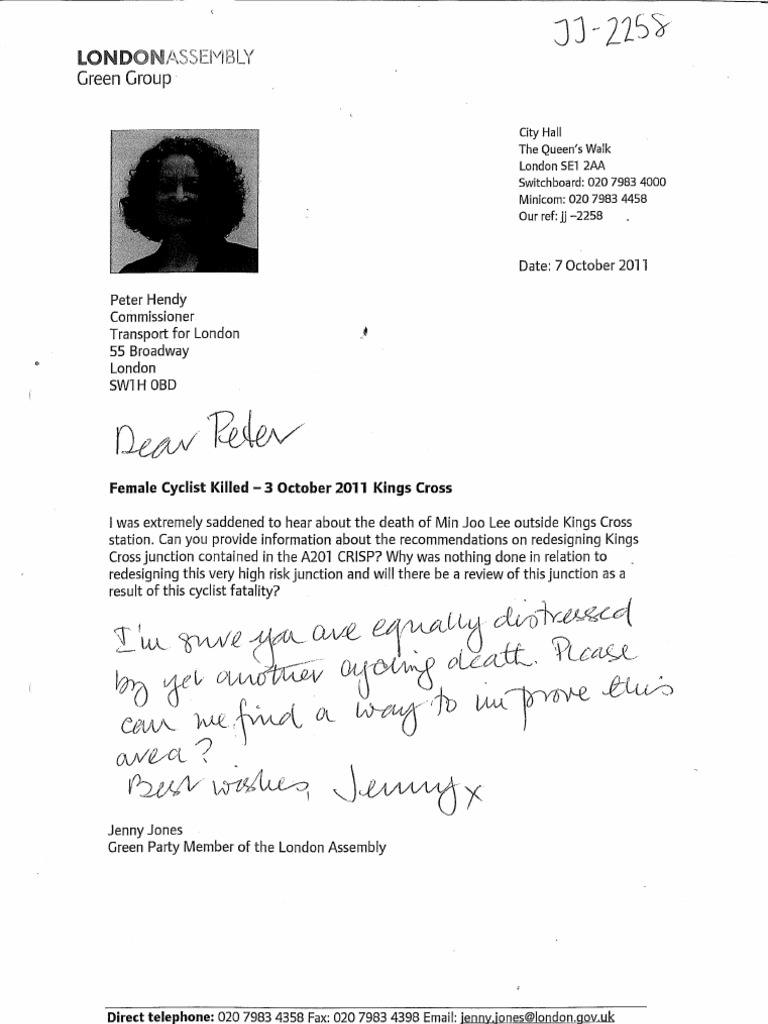 JJ-2258
LONDONASSEMBLY
Green Group
City Hall
The Queen's Walk
London SE1 2AA
Switchboard: 020 7983 4000
Minicom: 020 7983 4458
Our ref: jj –2258
Date: 7 October 2011
Peter Hendy
Commissioner
Transport for London
55 Broadway
London
SW1H 0BD
Dear Peter
Female Cyclist Killed – 3 October 2011 Kings Cross
I was extremely saddened to hear about the death of Min Joo Lee outside Kings Cross
station. Can you provide information about the recommendations on redesigning Kings
Cross junction contained in the A201 CRISP? Why was nothing done in relation to
redesigning this very high risk junction and will there be a review of this junction as a
result of this cyclist fatality?
I'm sure you are equally distressed
by yet another cycling death. Please
can we find a way to improve this
area?
Best wishes, Jenny x
Jenny Jones
Green Party Member of the London Assembly
Direct telephone: 020 7983 4358 Fax: 020 7983 4398 Email: jenny.jones@london.gov.uk